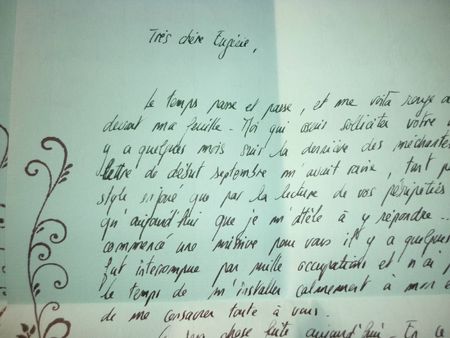 Très chère Eugénie,
Le temps passe et passe, et me voilà rouge
devant ma feuille - Moi qui avais sollicité votre
y a quelques mois suis la dernière des méchantes
lettre de début septembre m'avait ravie, tant
style enjoué que par la lecture de vos péripéties
qu'aujourd'hui que je m'attèle à y répondre...
commencé une missive pour vous il y a quelques
fut interrompue par mille occupations et n'ai
le temps de m'installer calmement à mon
de me consacrer toute à vous.
chose faite aujourd'hui. En ce